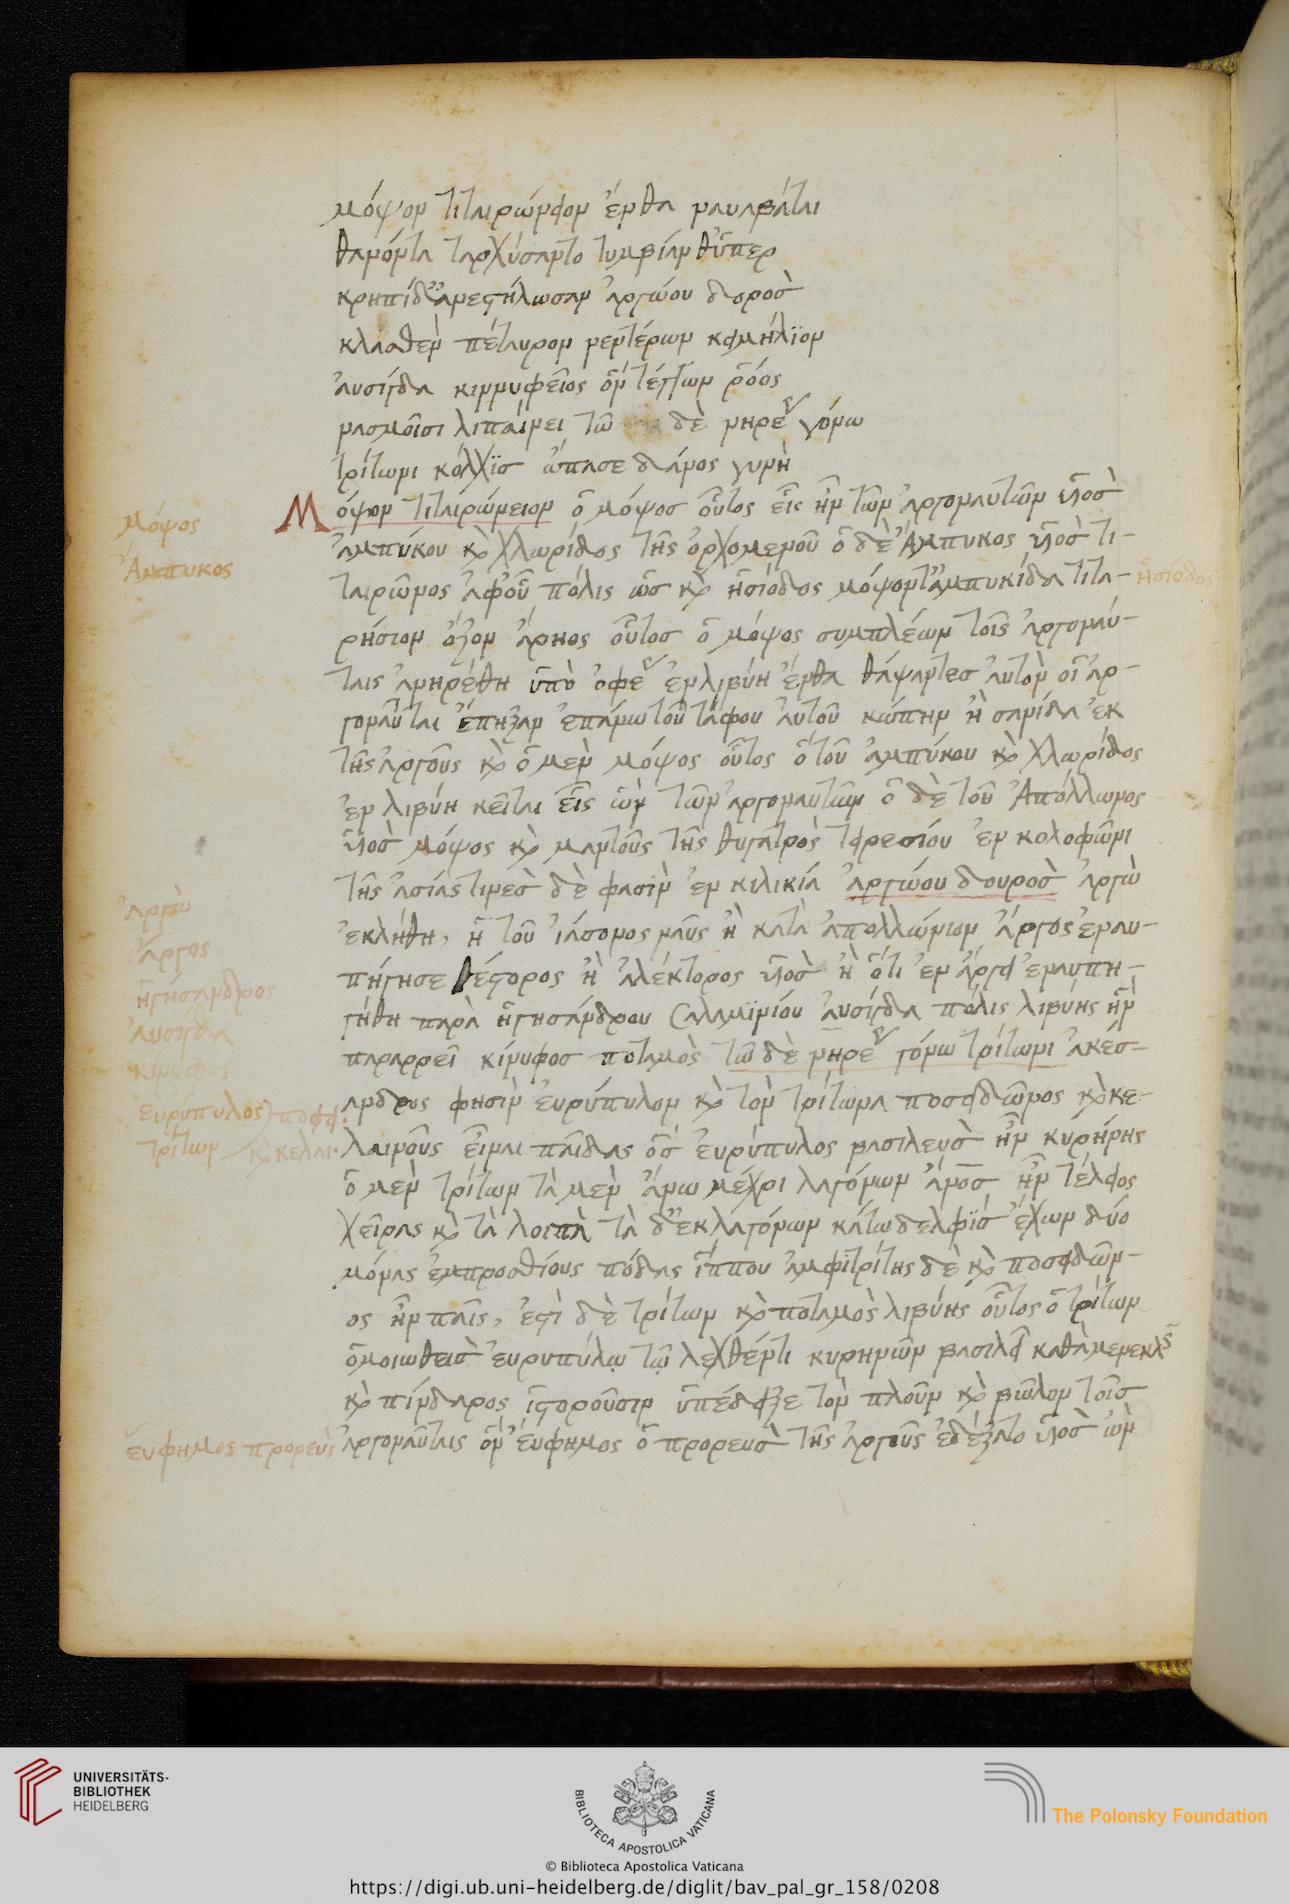 μόψον τιταιρώνειον ἔνθα ναυβάται
θανόντα ταρχύσαντο τυμβίαν θ' ὕπερ
κρηπίδ' ἀνεστήλωσαν ἀργώου δορὸς
κλασθὲν πέταυρον νερτέρων κειμήλϊον
αὐσίγδα κινύφειος ὃν τέγγων ῥόος
νασμοῖσι λιπαίνει τῶ δὲ νηρέως γόνω
τρίτωνι κόλχϊς ὤπασε δάνος γυνὴ
Μόψον τιταιρώνειον ὁ μόψος οὗτος εἷς ἦν τῶν ἀργοναυτῶν υἱὸς
Μόψος
ἀμπύκου καὶ χλωρίδος τῆς ὀρχομενοῦ ὁ δὲ Ἄμπυκος υἱὸς τι-
Ἄμπυκος
ταιρῶνος ἀφ' οὗ πόλις ὣς καὶ ἡσίοδος μόψον τ' ἀμπυκίδα τιτα-
ἡσίοδος
ρήσιον ὄζον ἄρηος οὗτος ὁ μόψος συμπλέων τοῖς ἀργοναύ-
ταις ἀνηρέθη ὑπὸ ὄφεως ἐν λιβύη ἔνθα θάψαντες αὐτὸν οἱ ἀρ-
γοναῦται ἔπηξαν ἐπάνω τοῦ τάφου αὐτοῦ κώπην ἢ σανίδα ἐκ
τῆς ἀργοῦς καὶ ὁ μὲν μόψος οὗτος ὁ τοῦ ἀμπύκου καὶ χλωρίδος
ἐν λιβύη κεῖται εἷς ὢν τῶν ἀργοναυτῶν ὁ δὲ τοῦ Ἀπόλλωνος
υἱὸς μόψος καὶ μαντοῦς τῆς θυγατρὸς τειρεσίου ἐν κολοφῶνι
τῆς ἀσίας τινὲς δὲ φασὶν ἐν κιλικία ἀργώου δουρὸς ἀργὼ
Ἀργὼ
ἐκλήθη, ἡ τοῦ ἰάσονος ναῦς ἢ κατὰ ἀπολλώνιον ἄργος ἐναυ-
Ἄργος
πήγησε θέστορος ἢ ἀλέκτορος υἱὸς ἢ ὅτι ἐν ἄργει ἐναυπη-
ἡγήσανδρος
γήθη παρὰ ἡγησάνδρου Σαλαμϊνίου αὐσίγδα πόλις λιβύης ἣν
αὐσίγδα
παραρρεῖ κίνυφος ποταμὸς τῶ δὲ νηρέως γόνω τρίτωνι ἀκέσ-
κίνυφος
ανδρος φησὶν εὐρύπυλον καὶ τὸν τρίτωνα ποσειδῶνος καὶ κε-
εὐρύπυλος ποσει.
λαινοῦς εἶναι παῖδας ὅς εὐρύπυλος βασιλεὺς ἦν κυρήνης
τρίτων καὶ κελαι.
ὁ μὲν τρίτων τὰ μὲν ἄνω μέχρι λαγόνων ἀνὸς ἦν τέλειος
χεῖρας καὶ τὰ λοιπὰ τὰ δ' ἐκ λαγόνων κάτω δελφῒς ἔχων δύο
μόνας ἐμπροσθίους πόδας ἵππου ἀμφιτρίτης δὲ καὶ ποσειδῶν-
ος ἦν παῖς, ἐστὶ δὲ τρίτων καὶ ποταμὸς λιβύης οὗτος ὁ τρίτων
ὁμοιωθεὶς εὐρυπύλῳ τῷ λεχθέντι κυρηνῶν βασιλεῖ καθὰ μενεκλῆς
καὶ πίνδαρος ἱστοροῦσιν ὑπέδειξε τὸν πλοῦν καὶ βῶλον τοῖς
ἀργοναῦταις ὃν εὔφημος ὁ προρεὺς τῆς ἀργοῦς ἐδέξατο υἱὸς ὢν
εὔφημος προρεὺς
UNIVERSITÄTS-
BIBLIOTHEK
HEIDELBERG
BIBLIOTECA APOSTOLICA VATICANA
The Polonsky Foundation
© Biblioteca Apostolica Vaticana
https://digi.ub.uni-heidelberg.de/diglit/bav_pal_gr_158/0208